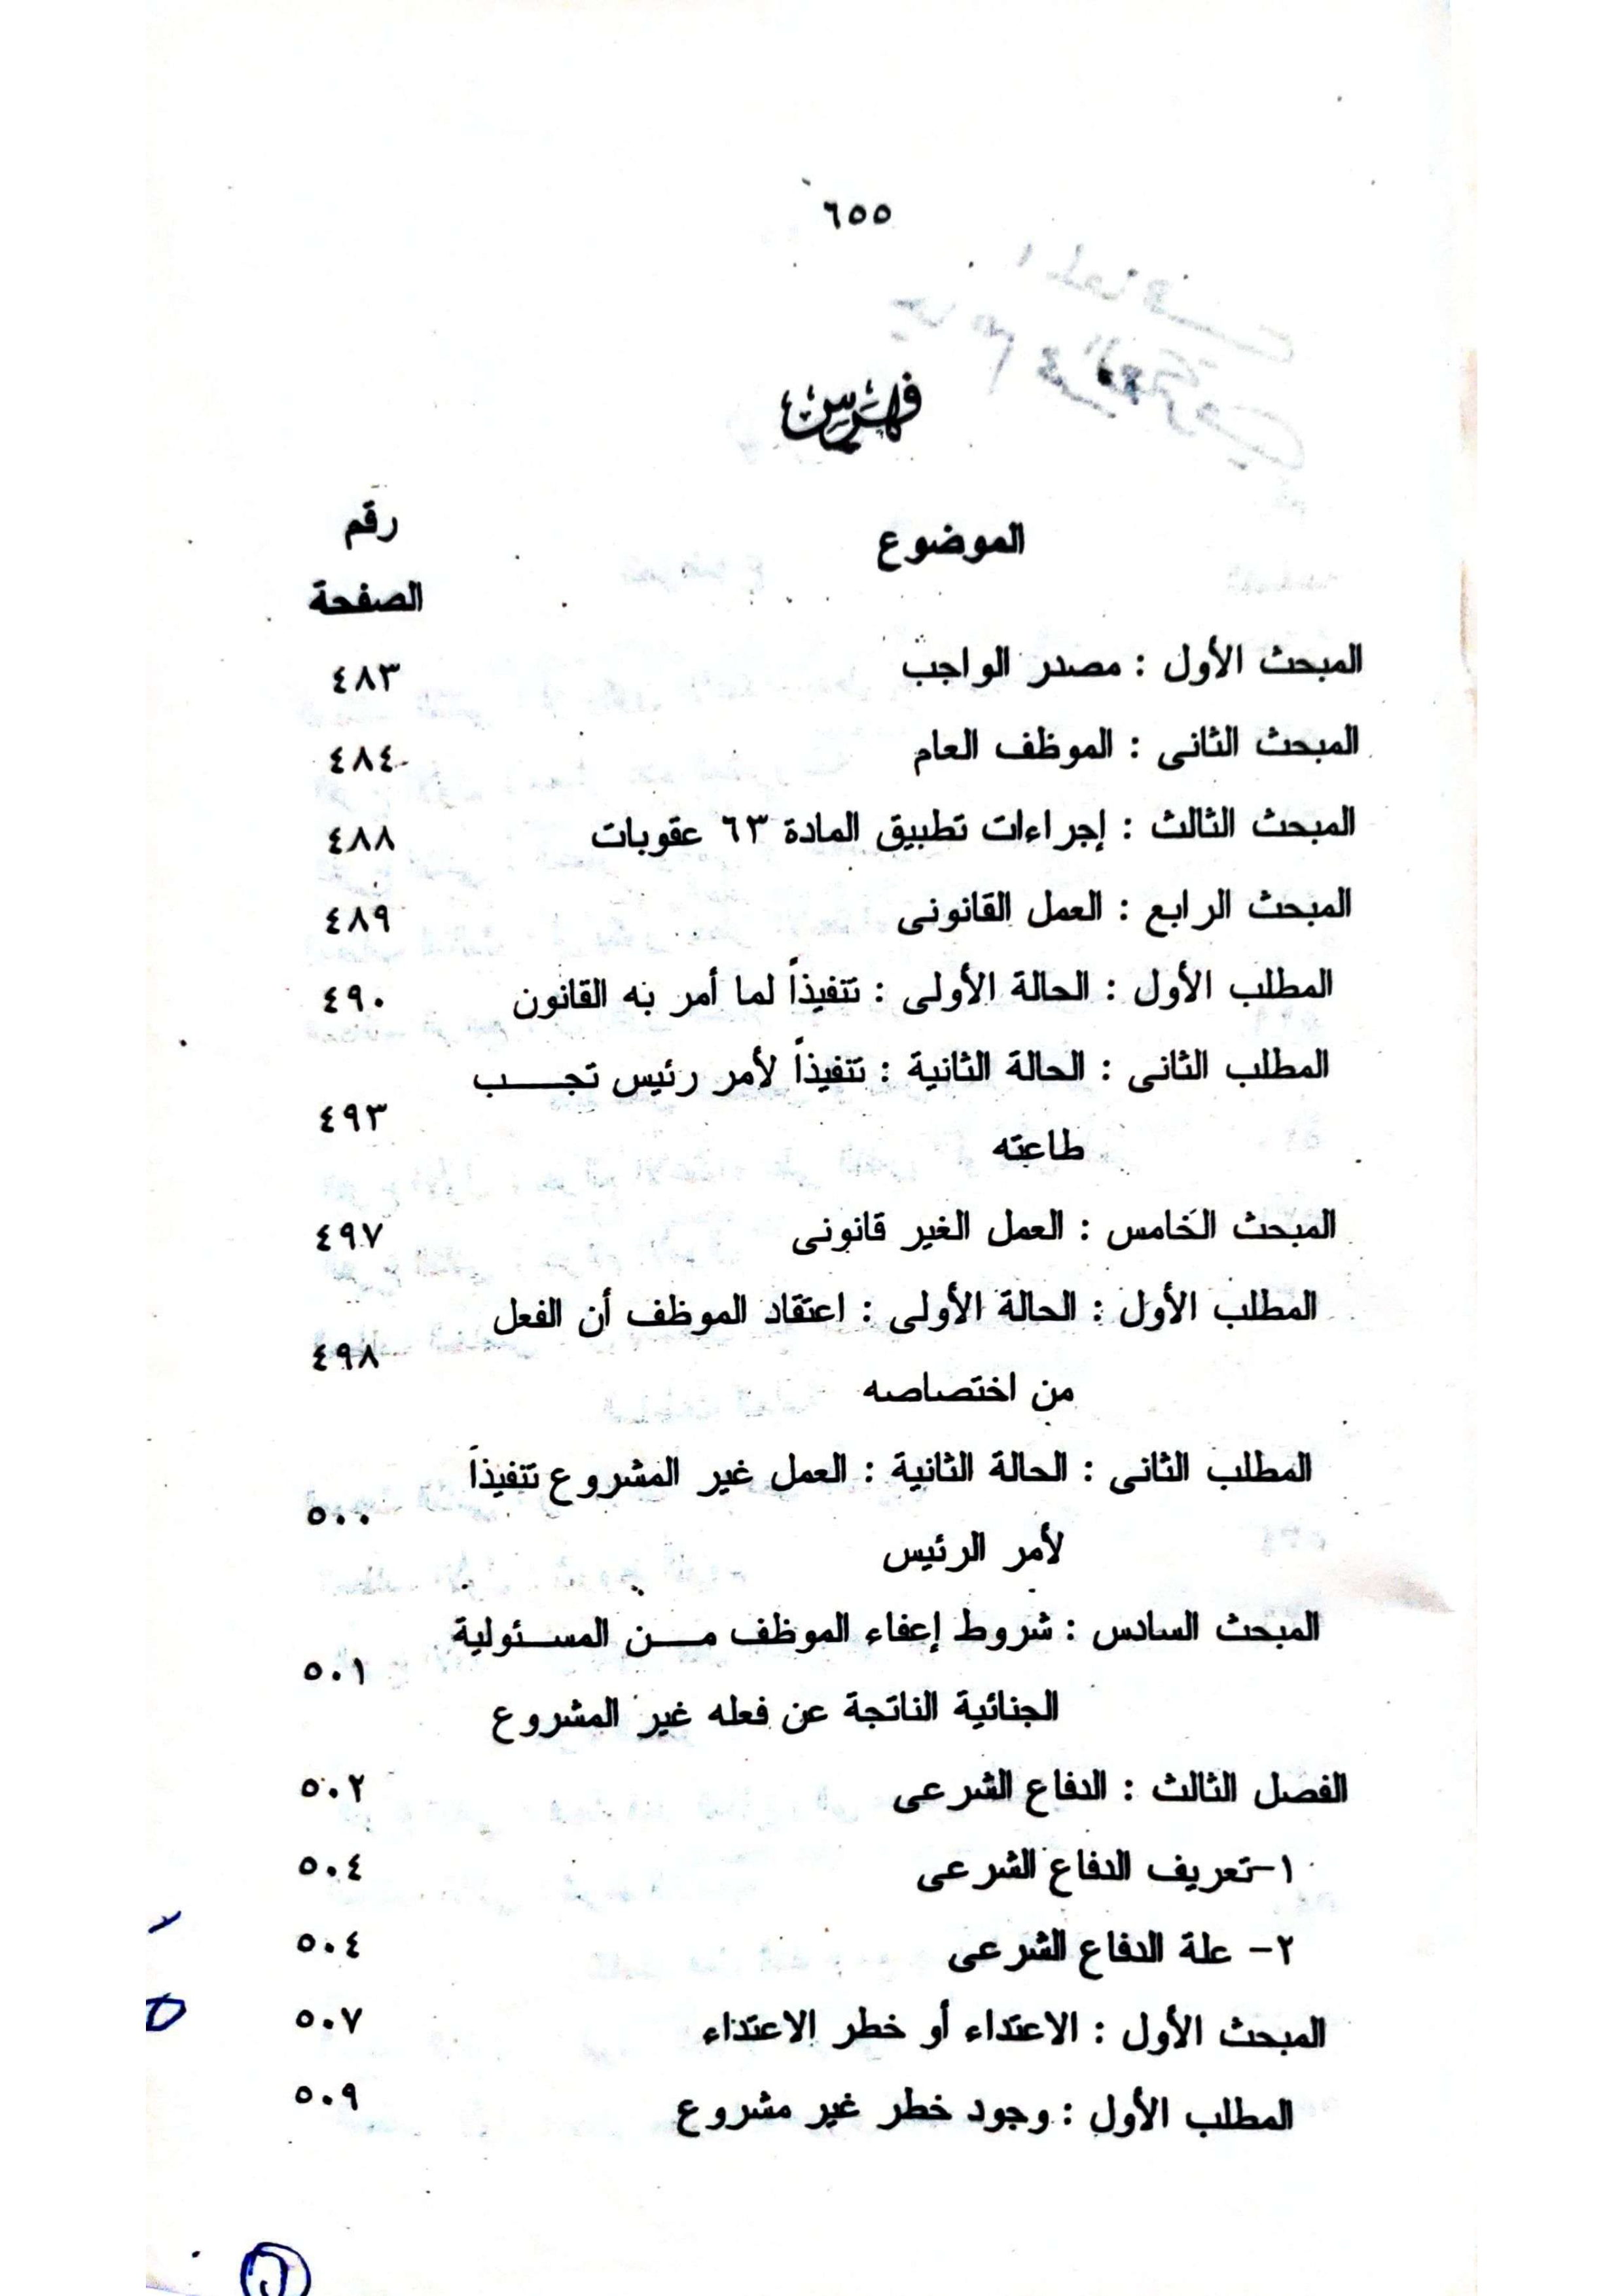 ٦٥٥
فهرس
الموضوع
رقم
الصفحة
المبحث الأول : مصدر الواجب ٤٨٣
المبحث الثانى : الموظف العام ٤٨٤
المبحث الثالث : إجراءات تطبيق المادة ٦٣ عقوبات ٤٨٨
المبحث الرابع : العمل القانونى ٤٨٩
المطلب الأول : الحالة الأولى : تتفيذاً لما أمر به القانون ٤٩٠
المطلب الثانى : الحالة الثانية : تتفيذاً لأمر رئيس تجـــب
٤٩٣
طاعته
المبحث الخامس : العمل الغير قانونى ٤٩٧
المطلب الأول : الحالة الأولى : اعتقاد الموظف أن الفعل
٤٩٨
من اختصاصه
المطلب الثانى : الحالة الثانية : العمل غير المشروع تتفيذاً
٥٠٠
لأمر الرئيس
المبحث السادس : شروط إعفاء الموظف مـــن المسـئولية
٥٠١
الجنائية الناتجة عن فعله غير المشروع
الفصل الثالث : الدفاع الشرعى ٥٠٢
١-تعريف الدفاع الشرعى ٥٠٤
٢- علة الدفاع الشرعى ٥٠٤
المبحث الأول : الاعتداء أو خطر الاعتداء ٥٠٧
المطلب الأول : وجود خطر غير مشروع ٥٠٩